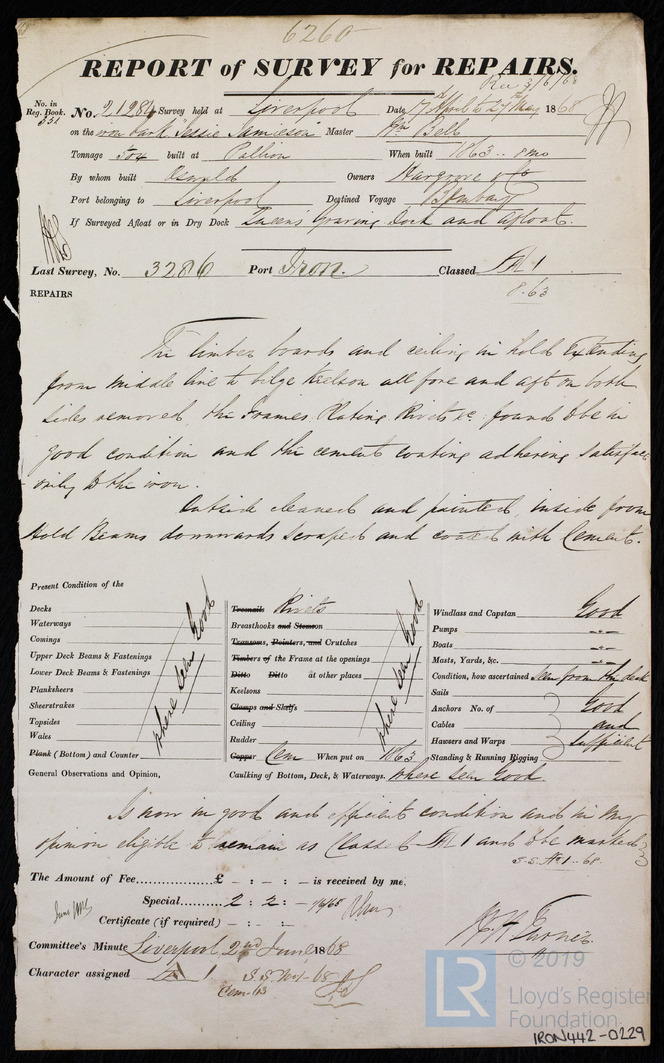 6260
REPORT of SURVEY for REPAIRS.
Rec 3/6/68
No. in Reg. Book. 551 No. 21284 Survey held at Liverpool Date 17 April to 27th May 1868
on the iron bark "Jessie Jamieson Master Wm Bell
Tonnage 504 built at Pallion When built 1863 .. 8 mo
By whom built Oswald Owners Hargrove & Co
Port belonging to Liverpool Destined Voyage Bombay
If Surveyed Afloat or in Dry Dock Queens Graving Dock and afloat.
Last Survey, No. 3286 Port Iron. Classed A 1
8.63
REPAIRS
The limber boards and ceiling in hold extending
from middle line to bilge keelson all fore and aft on both
sides removed, the Frames Plating Rivets &c found to be in
good condition and the cement coating adhering satisfact
orily to the iron.
Outside cleaned and painted, inside from
Hold Beams downwards scraped and coated with Cement.
Present Condition of the
Decks
Waterways
Comings
Upper Deck Beams & Fastenings
Lower Deck Beams & Fastenings
Planksheers
Sheerstrakes
Topsides
Wales
Plank (Bottom) and Counter
where seen Good
Treenails Rivets
Breasthooks and Stemson
Transoms, Pointers, and Crutches
Timbers of the Frame at the openings
Ditto Ditto at other places
Keelsons
Clamps and Shelfs
Ceiling
Rudder
Copper Cem When put on 1863
where seen Good
Windlass and Capstan Good
Pumps "
Boats "
Masts, Yards, &c. "
Condition, how ascertained Seen from the deck
Sails
Anchors No. of Good
Cables and
Hawsers and Warps sufficient
Standing & Running Rigging
General Observations and Opinion, Caulking of Bottom, Deck, & Waterways. where seen Good
Is now in good and efficient condition and in my
opinion eligible to remain as Classed A 1 and to be marked
S.S. No 1 .. 68.
The Amount of Fee............... £ - : - : - is received by me.
Special......... 2 : 2 : -
Certificate (if required) - : - : -
Committee's Minute Liverpool 2nd June 1868
Character assigned A 1 S.S. No 1 - 68
Cem. 63
© 2019
LR
Lloyd's Register
Foundation
IRON442-0229